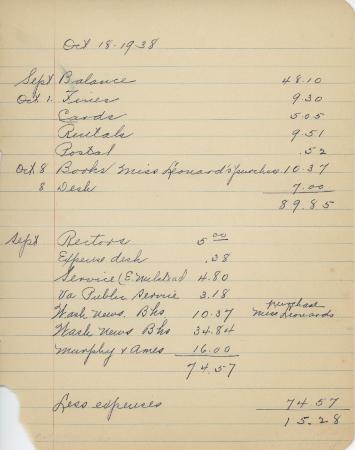 Oct 18-1938
Sept Balance 48.10
Oct 1. Fines 9.30
Cards 5.05
Rentals 9.51
Postal .52
Oct 8 Books Miss Leonard's purchase 10.37
8 Desk 7.00
89.85
Sept Rectors 5.00
Expense desk .38
Service (E. Milstead 4.80
Va Public Service 3.18
Wash news. Bks 10.37 purchase Miss Leonards
Wash news Bks 34.84
Murphy & Ames 16.00
74.57
Less expences 74.57
15.28